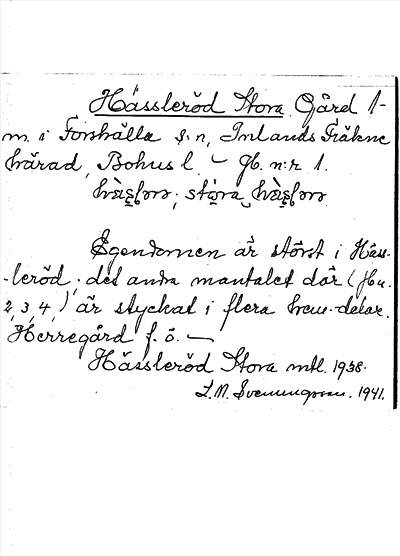 Hässleröd Stora. Gård 1
m. i Forshälla s:n, Inlands Fräkne
härad, Bohus l. – Jb. n:r 1.
Egendomen är störst i Häss-
-leröd; det andra mantalet där (Hu.
2, 3, 4,) är styckat i flera hem.-delar.
Herregård f. ö. —
Hässleröd Stora mtl. 1938.
L. M. Svenungsson. 1941.